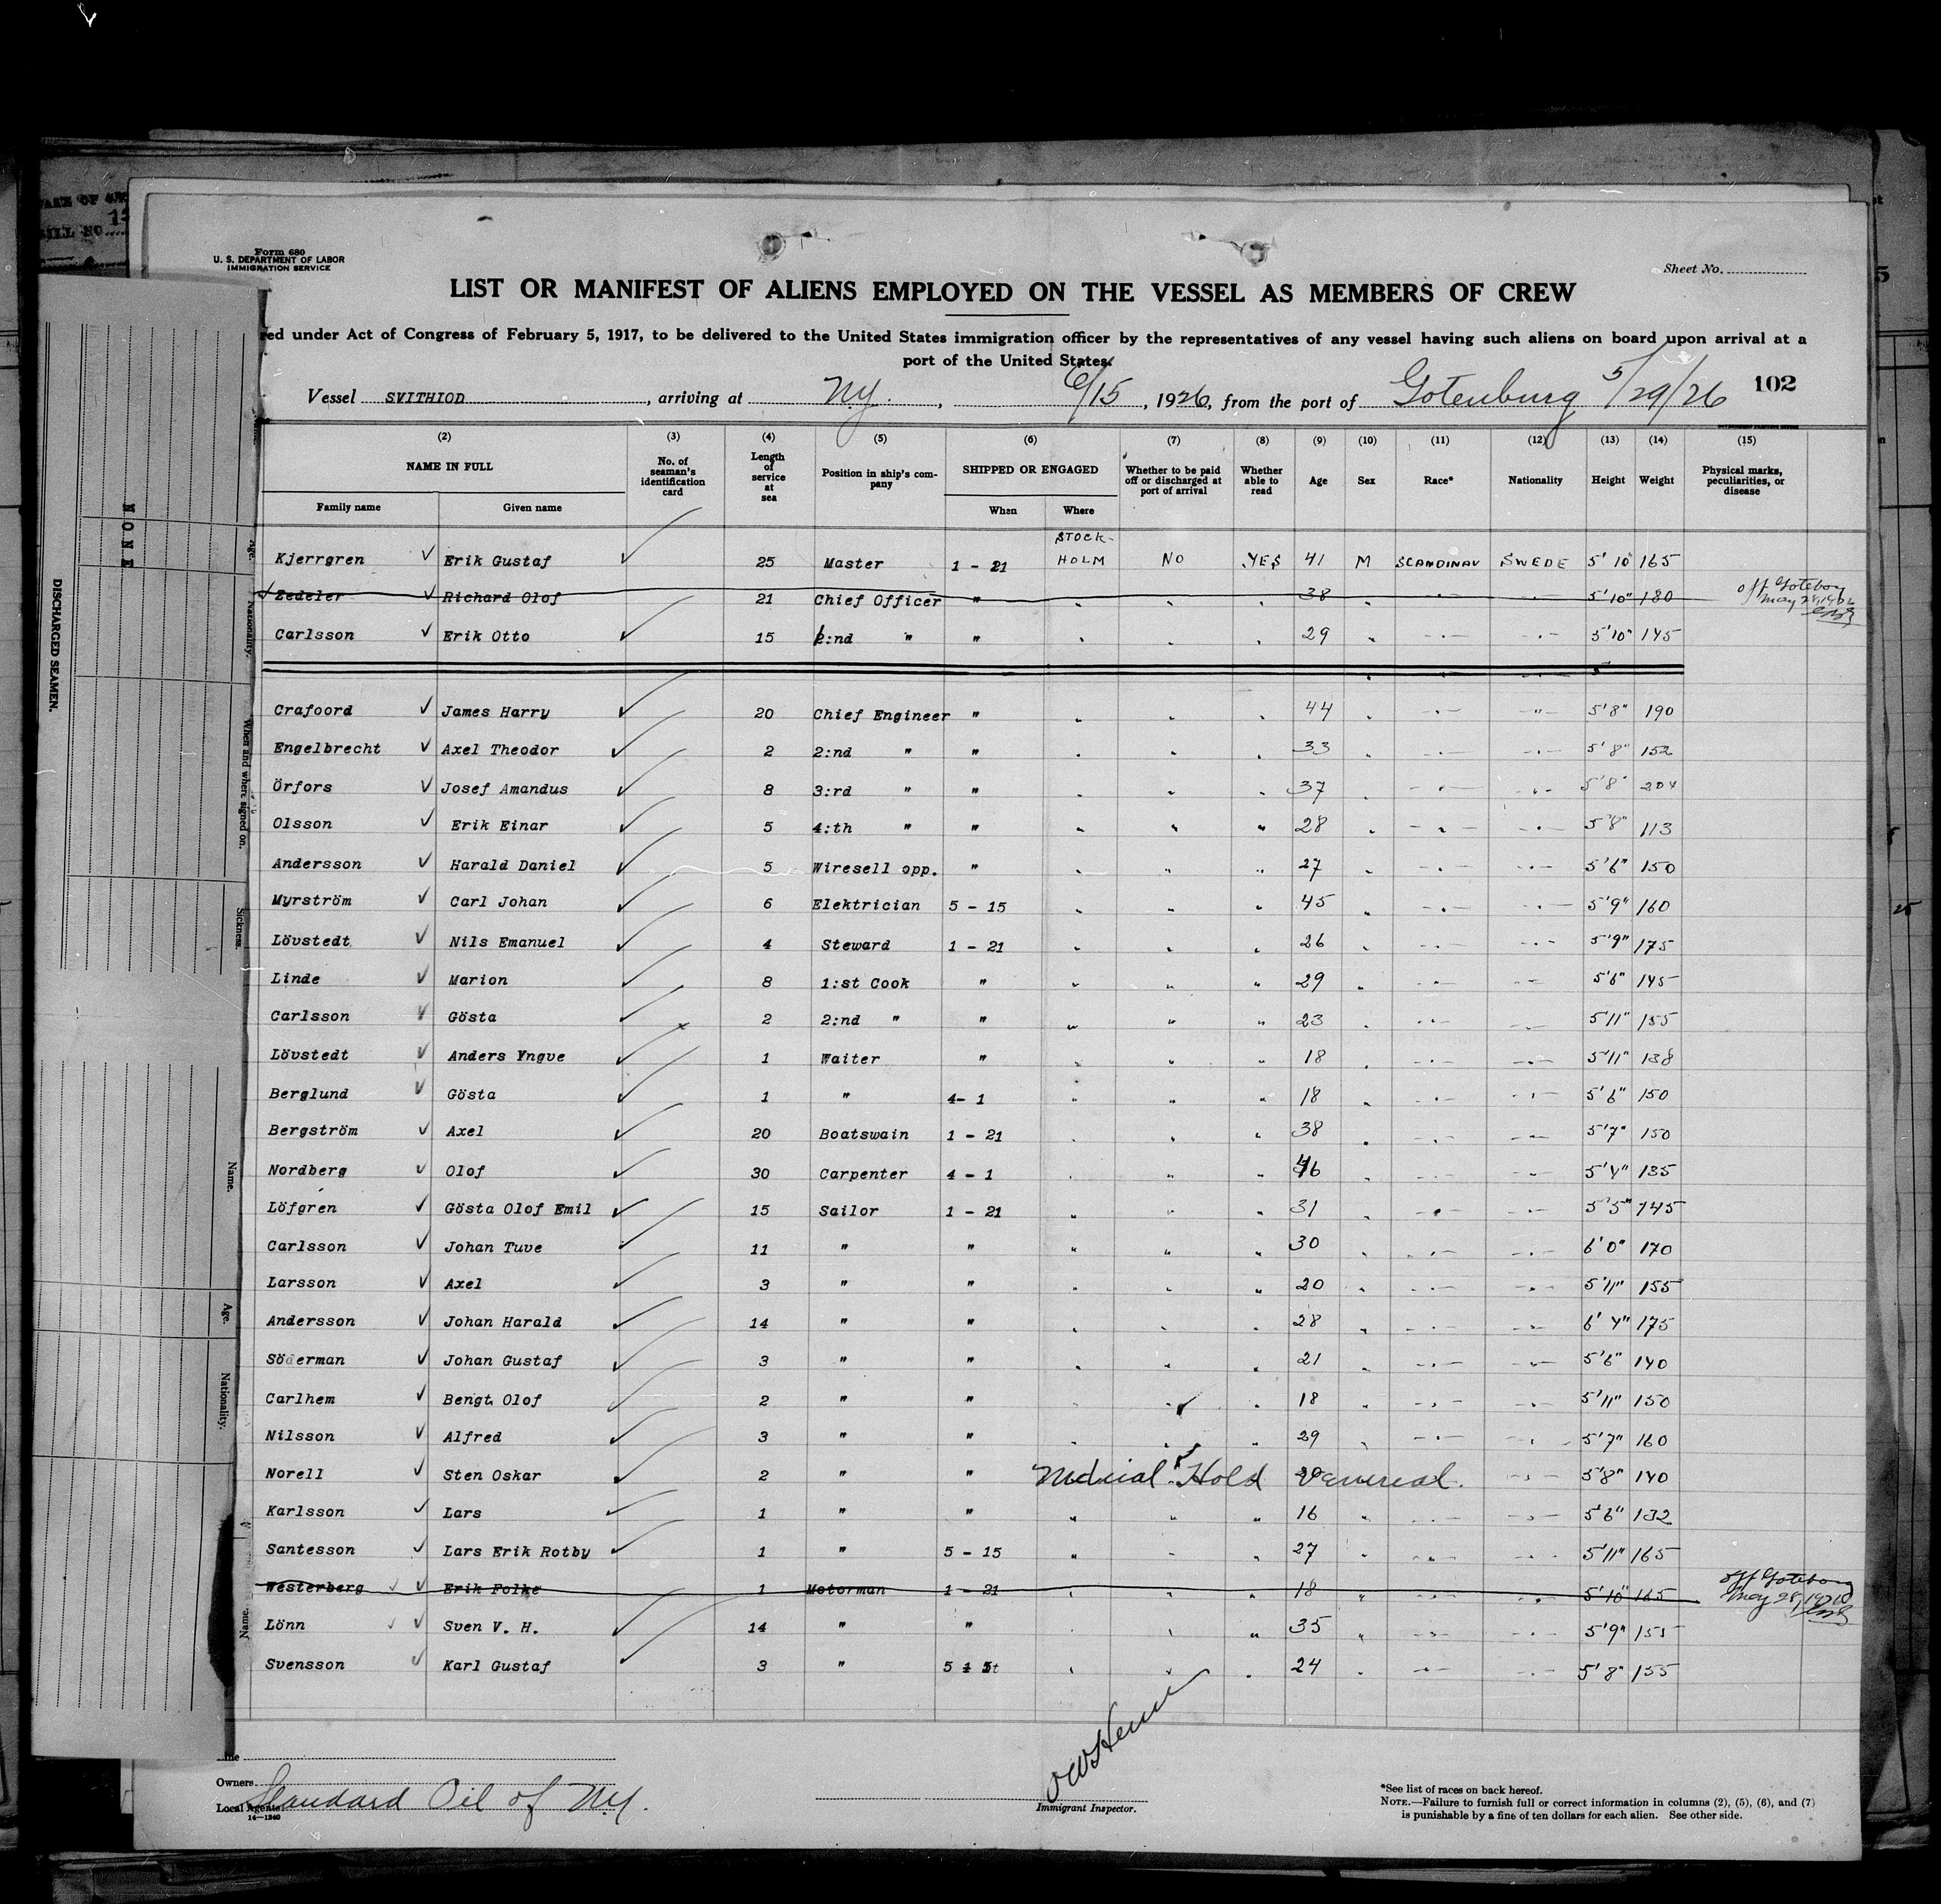 Form 680
U. S. DEPARTMENT OF LABOR
IMMIGRATION SERVICE
Sheet No.
LIST OR MANIFEST OF ALIENS EMPLOYED ON THE VESSEL AS MEMBERS OF CREW
red under Act of Congress of February 5, 1917, to be delivered to the United States immigration officer by the representatives of any vessel having such aliens on board upon arrival at a
port of the United States.
Vessel SVITHIOD, arriving at N.Y., 6/15, 1926, from the port of Gotenburg 5/29/26 102
(2) (3) (4) (5) (6) (7) (8) (9) (10) (11) (12) (13) (14) (15)
NAME IN FULL No. of seaman's identification card Length of service at sea Position in ship's company SHIPPED OR ENGAGED Whether to be paid off or discharged at port of arrival Whether able to read Age Sex Race* Nationality Height Weight Physical marks, peculiarities, or disease
Family name Given name When Where
Kjerrgren Erik Gustaf 25 Master 1 - 21 STOCK-HOLM NO YES 41 M SCANDINAV SWEDE 5' 10" 165
Zedeler Richard Olof 21 Chief Officer " " " " 38 " " " 5'10" 180 off Goteborg May 28, 1926
Carlsson Erik Otto 15 2:nd " " " " " 29 " " " 5'10" 145
Crafoord James Harry 20 Chief Engineer " " " " 44 " " " 5'8" 190
Engelbrecht Axel Theodor 2 2:nd " " " " " 33 " " " 5'8" 152
Örfors Josef Amandus 8 3:rd " " " " " 37 " " " 5'8" 204
Olsson Erik Einar 5 4:th " " " " " 28 " " " 5'8" 113
Andersson Harald Daniel 5 Wiresell opp. " " " " 27 " " " 5'6" 150
Myrström Carl Johan 6 Elektrician 5 - 15 " " " 45 " " " 5'9" 160
Lövstedt Nils Emanuel 4 Steward 1 - 21 " " " 26 " " " 5'9" 175
Linde Marion 8 1:st Cook " " " " 29 " " " 5'6" 145
Carlsson Gösta 2 2:nd " " " " " 23 " " " 5'11" 155
Lövstedt Anders Yngve 1 Waiter " " " " 18 " " " 5'11" 138
Berglund Gösta 1 " 4- 1 " " " 18 " " " 5'6" 150
Bergström Axel 20 Boatswain 1 - 21 " " " 38 " " " 5'7" 150
Nordberg Olof 30 Carpenter 4 - 1 " " " 46 " " " 5'4" 135
Löfgren Gösta Olof Emil 15 Sailor 1 - 21 " " " 31 " " " 5'5" 145
Carlsson Johan Tuve 11 " " " " " 30 " " " 6'0" 170
Larsson Axel 3 " " " " " 20 " " " 5'11" 155
Andersson Johan Harald 14 " " " " " 28 " " " 6'4" 175
Söderman Johan Gustaf 3 " " " " " 21 " " " 5'6" 140
Carlhem Bengt Olof 2 " " " " " 18 " " " 5'11" 150
Nilsson Alfred 3 " " " " " 29 " " " 5'7" 160
Norell Sten Oskar 2 " " Medical Hold Venereal. " 5'8" 140
Karlsson Lars 1 " " " " " 16 " " " 5'6" 132
Santesson Lars Erik Rotby 1 " 5 - 15 " " " 27 " " " 5'11" 165
Westerberg Erik Folke 1 Motorman 1 - 21 " " " 18 " " " 5'10" 165 off Goteborg May 28, 1926
Lönn Sven V. H. 14 " " " " " 35 " " " 5'9" 155
Svensson Karl Gustaf 3 " " " " 24 " " " 5'8" 155
Owners
Local Agents Standard Oil of N.Y.
14-1240
Immigrant Inspector.
*See list of races on back hereof.
NOTE.—Failure to furnish full or correct information in columns (2), (5), (6), and (7)
is punishable by a fine of ten dollars for each alien. See other side.
DISCHARGED SEAMEN.
NONE
Age.
Nationality.
When and where signed on.
Sickness.
Name.
Age.
Nationality.
Name.